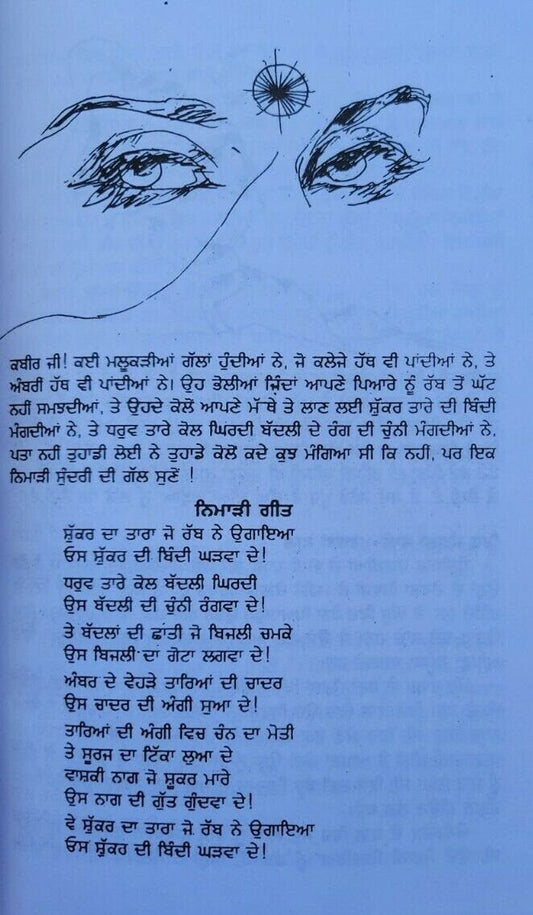 ਕਬੀਰ ਜੀ! ਕਈ ਮਲੂਕੜੀਆਂ ਗੱਲਾਂ ਹੁੰਦੀਆਂ ਨੇ, ਜੋ ਕਲੇਜੇ ਹੱਥ ਵੀ ਪਾਂਦੀਆਂ ਨੇ, ਤੇ
ਅੰਬਰੀਂ ਹੱਥ ਵੀ ਪਾਂਦੀਆਂ ਨੇ। ਉਹ ਭੋਲੀਆਂ ਜ਼ਿੰਦਾਂ ਆਪਣੇ ਪਿਆਰੇ ਨੂੰ ਰੱਬ ਤੋਂ ਘੱਟ
ਨਹੀਂ ਸਮਝਦੀਆਂ, ਤੇ ਉਹਦੇ ਕੋਲੋਂ ਆਪਣੇ ਮੱਥੇ ਤੇ ਲਾਣ ਲਈ ਸ਼ੁੱਕਰ ਤਾਰੇ ਦੀ ਬਿੰਦੀ
ਮੰਗਦੀਆਂ ਨੇ, ਤੇ ਧਰੁਵ ਤਾਰੇ ਕੋਲ ਘਿਰਦੀ ਬੱਦਲੀ ਦੇ ਰੰਗ ਦੀ ਚੁੰਨੀ ਮੰਗਦੀਆਂ ਨੇ.
ਪਤਾ ਨਹੀਂ ਤੁਹਾਡੀ ਲੋਈ ਨੇ ਤੁਹਾਡੇ ਕੋਲੋਂ ਕਦੇ ਕੁਝ ਮੰਗਿਆ ਸੀ ਕਿ ਨਹੀਂ, ਪਰ ਇਕ
ਨਿਮਾੜੀ ਸੁੰਦਰੀ ਦੀ ਗੱਲ ਸੁਣੋਂ !
ਨਿਮਾੜੀ ਗੀਤ
ਸ਼ੁੱਕਰ ਦਾ ਤਾਰਾ ਜੋ ਰੱਬ ਨੇ ਉਗਾਇਆ
ਓਸ ਸ਼ੁੱਕਰ ਦੀ ਬਿੰਦੀ ਘੜਵਾ ਦੇ!
ਧਰੁਵ ਤਾਰੇ ਕੋਲ ਬੱਦਲੀ ਘਿਰਦੀ
ਉਸ ਬੱਦਲੀ ਦੀ ਚੁੰਨੀ ਰੰਗਵਾ ਦੇ!
ਤੇ ਬੱਦਲਾਂ ਦੀ ਛਾਂਤੀ ਜੋ ਬਿਜਲੀ ਚਮਕੇ
ਉਸ ਬਿਜਲੀ ਦਾ ਗੋਟਾ ਲਗਵਾ ਦੇ!
ਅੰਬਰ ਦੇ ਵੇਹੜੇ ਤਾਰਿਆਂ ਦੀ ਚਾਦਰ
ਉਸ ਚਾਦਰ ਦੀ ਅੰਗੀ ਸੁਆ ਦੇ!
ਤਾਰਿਆਂ ਦੀ ਅੰਗੀ ਵਿਚ ਚੰਨ ਦਾ ਮੋਤੀ
ਤੇ ਸੂਰਜ ਦਾ ਟਿੱਕਾ ਲੁਆ ਦੇ
ਵਾਸ਼ਕੀ ਨਾਗ ਜੋ ਸ਼ੂਕਰ ਮਾਰੇ
ਉਸ ਨਾਗ ਦੀ ਗੁੱਤ ਗੁੰਦਵਾ ਦੇ!
ਵੇ ਸ਼ੁੱਕਰ ਦਾ ਤਾਰਾ ਜੋ ਰੱਬ ਨੇ ਉਗਾਇਆ
ਓਸ ਸ਼ੁੱਕਰ ਦੀ ਬਿੰਦੀ ਘੜਵਾ ਦੇ!